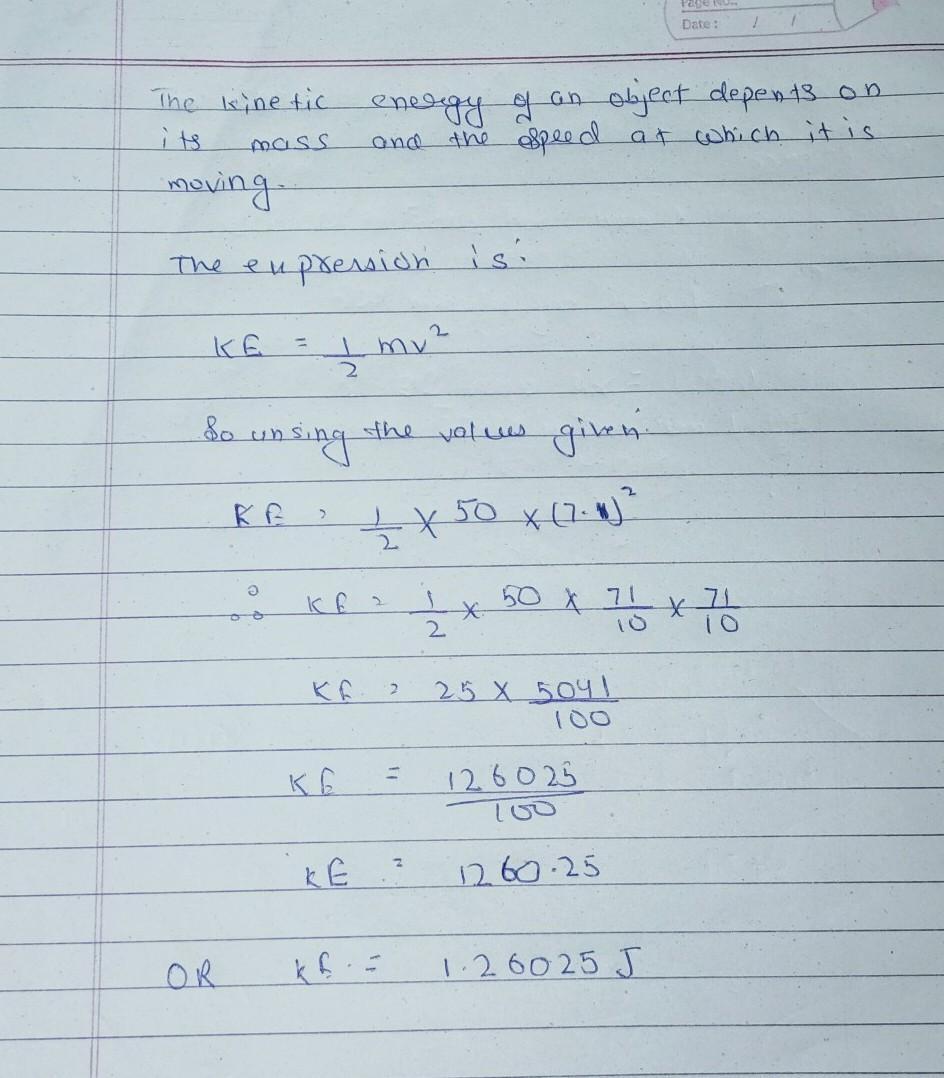 Page No.
Date: / /
The kinetic energy of an object depents on
its mass and the speed at which it is
moving.
The eupression is:
KE = 1/2 mv²
So unsing the values given.
KE = 1/2 × 50 × (7.1)²
∴ KE = 1/2 × 50 × 71/10 × 71/10
KE = 25 × 5041/100
KE = 126025/100
KE = 1260.25
OR KE = 1.26025 J